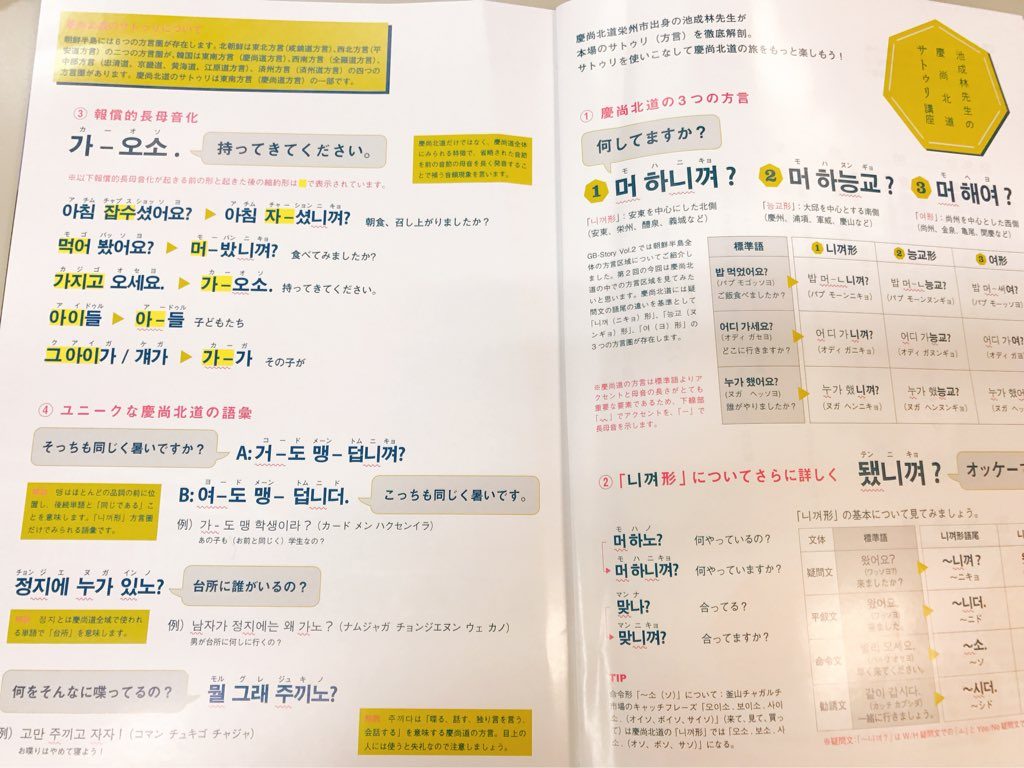 慶尚北道のサトゥリについて
朝鮮半島には6つの方言圏が存在します。北朝鮮は東北方言(咸鏡道方言)、西北方言(平
安道方言)の二つの方言圏が、韓国は東南方言(慶尚道方言)、西南方言(全羅道方言)、
中部方言(忠清道、京畿道、黄海道、江原道方言)、済州方言(済州道方言)の四つの
方言圏があります。慶尚北道のサトゥリは東南方言(慶尚道方言)の一部です。
③ 報償的長母音化
カーオソ
가-오소.
持ってきてください。
慶尚北道だけではなく、慶尚道全体
にみられる特徴で、省略された音節
を前の音節の母音を長く発音するこ
とで補う音韻現象を言います。
※以下報償的長母音化が起きる前の形と起きた後の縮約形は で表示されています。
アチム チャプスショッソヨ アチム チャーションニキョ
아침 잡수셨어요? ▶ 아침 자-셨니껴? 朝食、召し上がりましたか?
モゴ バッソヨ モーバンニキョ
먹어 봤어요? ▶ 머-봤니껴? 食べてみましたか?
カジゴ オセヨ カーオソ
가지고 오세요. ▶ 가-오소. 持ってきてください。
アイドゥル アードゥル
아이들 ▶ 아-들 子どもたち
クアイガ ケガ カーガ
그 아이가 / 걔가 ▶ 가-가 その子が
④ ユニークな慶尚北道の語彙
そっちも同じく暑いですか?
コード メーン トムニキョ
A:거-도 맹- 덥니껴?
ヨード メーン トムニド
B:여-도 맹- 덥니더.
こっちも同じく暑いです。
맹はほとんどの品詞の前に位
置し、後続単語と「同じである」こ
とを意味します。「니껴形」方言圏
だけでみられる語彙です。
例)가-도 맹 학생이라?(カード メン ハクセンイラ)
あの子も(お前と同じ)学生なの?
チョンジエ ヌガ インノ
정지에 누가 있노?
台所に誰がいるの?
정지とは慶尚道全域で使われ
る単語で「台所」を意味します。
例)남자가 정지에는 왜 가노?(ナムジャガ チョンジエヌン ウェ カノ)
男が台所に何しに行くの?
何をそんなに喋ってるの?
モル グレ ジュキノ
뭘 그래 주끼노?
例)고만 주끼고 자자!(コマン チュキゴ チャジャ)
お喋りはやめて寝よう!
주끼다は「喋る、話す、独り言を言う、
会話する」を意味する慶尚道の方言。目上の
人には使うと失礼なので注意しましょう。
慶尚北道栄州市出身の池成林先生が
本場のサトゥリ(方言)を徹底解剖。
サトゥリを使いこなして慶尚北道の旅をもっと楽しもう!
池成林先生の
慶尚北道
サトゥリ講座
① 慶尚北道の3つの方言
何してますか?
モ ハニキョ
❶ 머 하니껴?
モ ハヌンギョ
❷ 머 하능교?
モ ヘヨ
❸ 머 해여?
「니껴形」:安東を中心にした北側
(安東、栄州、醴泉、義城など)
「능교形」:大邱を中心とする南側
(慶州、浦項、軍威、慶山など)
「여形」:尚州を中心とした西側
(尚州、金泉、亀尾、聞慶など)
GB-Story Vol.2では朝鮮半島全
体の方言区域についてご紹介し
ました。第2回の今回は慶尚北
道の中での方言区域を見てみた
いと思います。慶尚北道には疑
問文の語尾の違いを基準として
「니껴(ニキョ)形」、「능교(ヌ
ンギョ)形」、「여(ヨ)形」の
3つの方言圏が存在します。
標準語 ❶ 니껴形 ❷ 능교形 ❸ 여形
밥 먹었어요?
(パプ モゴッソヨ)
ご飯食べましたか?
밥 머-ㄴ니껴?
(パプ モーンニキョ)
밥 머-ㄴ능교?
(パプ モーンヌンギョ)
밥 머-ㅆ여?
(パプ モーッソヨ)
어디 가세요?
(オディ ガセヨ)
どこに行きますか?
어디 가니껴?
(オディ ガニキョ)
어디 가능교?
(オディ ガヌンギョ)
어디 가여?
누가 했어요?
(ヌガ ヘッソヨ)
誰がやりましたか?
누가 했니껴?
(ヌガ ヘンニキョ)
누가 했능교?
(ヌガ ヘンヌンギョ)
누가 했
※慶尚道の方言は標準語よりア
クセントと母音の長さがとても
重要な要素であるため、下線部
でアクセントを、「ー」で
長母音を示します。
②「니껴形」についてさらに詳しく
テンニキョ
됐니껴?
「니껴形」の基本について見てみましょう。
モハノ
머 하노? 何やっているの?
モハニキョ
머 하니껴? 何やっていますか?
マンナ
맞나? 合ってる?
マンニキョ
맞니껴? 合ってますか?
文体 標準語 니껴形語尾
疑問文
왔어요?
(ワッソヨ?)
来ましたか?
~니껴?
~ニキョ
平叙文
왔어요.
来ました。
~니더.
~ニド
命令文
빨리 오세요.
早く来てください。
~소.
~ソ
勧誘文
같이 갑시다.
(カッチ カプシダ)
一緒に行きましょう。
~시더.
~シド
TIP
命令形「~소(ソ)」について:釜山チャガルチ
市場のキャッチフレーズ「오이소、보이소、사이
소、(オイソ、ボイソ、サイソ)」(来て、見て、買っ
て)は慶尚北道の「니껴形」では「오소、보소、사
소、(オソ、ボソ、サソ)」になる。